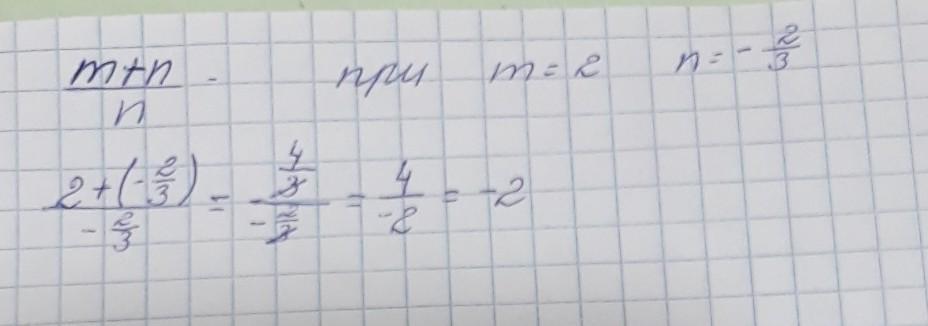 (m+n)/n - при m = 2 n = - 2/3
(2 + (- 2/3))/(- 2/3) = (4/3)/(- 2/3) = 4/-2 = -2